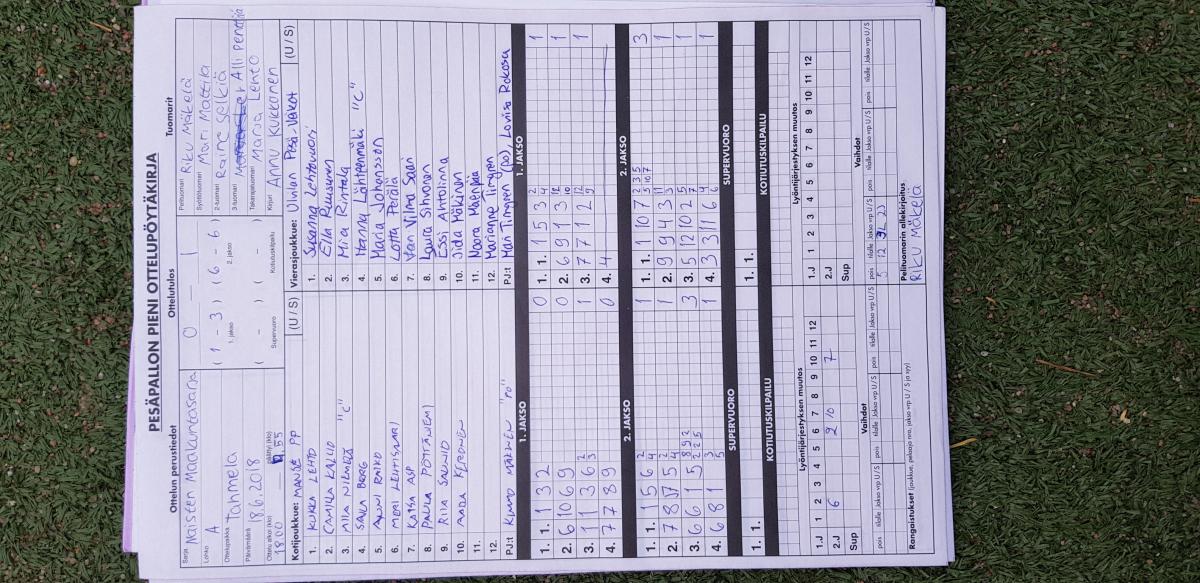 PESÄPALLON PIENI OTTELUPÖYTÄKIRJA
Ottelun perustiedot Ottelutulos Tuomarit
Sarja Naisten Maakuntasarja
Lohko A
Ottelupaikka Tahmela
Päivämäärä 18.6.2018
Ottelu alkoi (klo) 18.00 päättyi (klo)
0 - 1
( 1 - 3 ) ( 6 - 6 )
1. jakso 2. jakso
( - ) ( - )
Supervuoro Kotiutuskilpailu
Pelituomari Riku Mäkelä
Syöttötuomari Mari Mattila
2-tuomari Raine Selkiä
3-tuomari Alli Penttilä
Takarajatuomari Maria Lehto
Kirjuri Annu Kukkonen
Kotijoukkue: MANSE PP (U / S)
1. KUKKA LEHTO
2. CAMILLA KALLIO
3. MIIA NIEMINEN "C"
4. SALLA BERG
5. ANNI RAIKO
6. MERI LEHTISAARI
7. KATJA ASP
8. PAULA PÖTTÄNEN
9. RIIA SAUNIO
10.
11.
12.
PJ:t KIMMO "PO"
Vierasjoukkue: Ulvilan Pesä-Veikot (U / S)
1. Susanna Lehtovuori
2. Ella Ruusunen
3. Mira Rintala
4. Hanna Lähteenmäki "C"
5. Maria Johansson
6. Lotta Perälä
7. Vilma Saari
8. Laura Sihvonen
9. Essi Anttolinna
10. Iida Mäkinen
11. Noora Mäenpää
12. Marianne Tingren
PJ:t Mari Tingren (po), Loviisa Rokosa
1. JAKSO 1. JAKSO
1. 1. 1 3 2 0
2. 6 10 6 9 0
3. 1 1 3 6 3 2 1
4. 7 7 8 9 0
1. 1. 1 5 3 4 2 1
2. 6 9 1 3 10 12 1
3. 7 7 1 2 9 12 1
4. 4
2. JAKSO 2. JAKSO
1. 1. 1 5 6 4 2 1
2. 7 8 5 4 2 1
3. 6 6 1 5 3
4. 6 8 1 5 3 1
1. 1. 1 10 7 3
2. 9 9 4 3 1
3. 5 12 10 2 1
4. 3 3 11 6 1
SUPERVUORO SUPERVUORO
1. 1.
1. 1.
KOTIUTUSKILPAILU KOTIUTUSKILPAILU
Lyöntijärjestyksen muutos Lyöntijärjestyksen muutos
1.J 1 2 3 4 5 6 7 8 9 10 11 12
2.J 6 2 10 7
Sup
1.J 1 2 3 4 5 6 7 8 9 10 11 12
2.J
Sup
Vaihdot Vaihdot
pois tilalle Jakso vrp U / S pois tilalle Jakso vrp U / S pois tilalle Jakso vrp U / S
pois tilalle Jakso vrp U / S pois tilalle Jakso vrp U / S
5 12
Rangaistukset (joukkue, pelaaja nro, jakso vrp U / S ja syy)
Pelituomarin allekirjoitus
RIKU MÄKELÄ